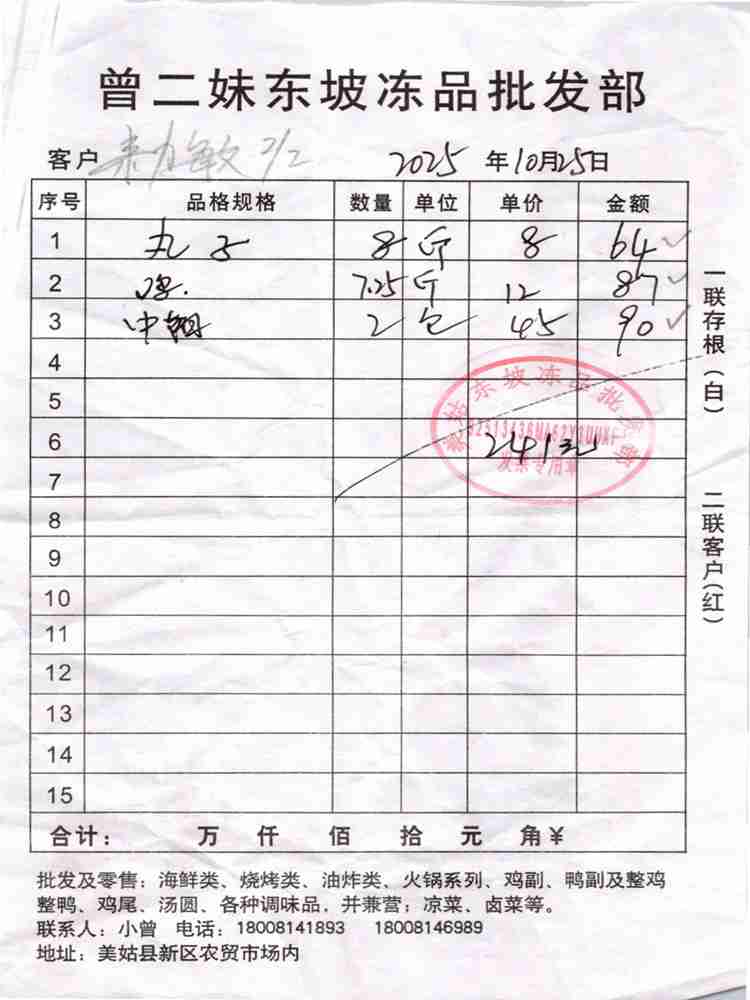 曾二妹东坡冻品批发部
客户 2/2 2025 年10月25日
序号 品格规格 数量 单位 单价 金额
1 丸子 8 斤 8 64
2 7.25 斤 12 87
3 中翅 2 包 45 90
4
5
6 241元
7
8
9
10
11
12
13
14
15
合计: 万 仟 佰 拾 元 角¥
批发及零售:海鲜类、烧烤类、油炸类、火锅系列、鸡副、鸭副及整鸡
整鸭、鸡尾、汤圆、各种调味品,并兼营:凉菜、卤菜等。
联系人:小曾 电话:18008141893 18008146989
地址:美姑县新区农贸市场内
一联存根(白)
二联客户(红)
东坡冻品批
发票专用章